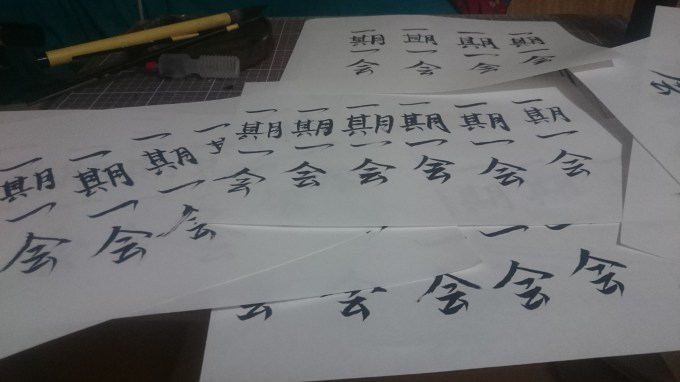 一期一会
一期一会
一期一会
一期一会
一期一会
一期一会
一期一会
一期一会
一期一会
一期一会
一期一会
一期一会
一期一会
一
会
一会
一会
会
会